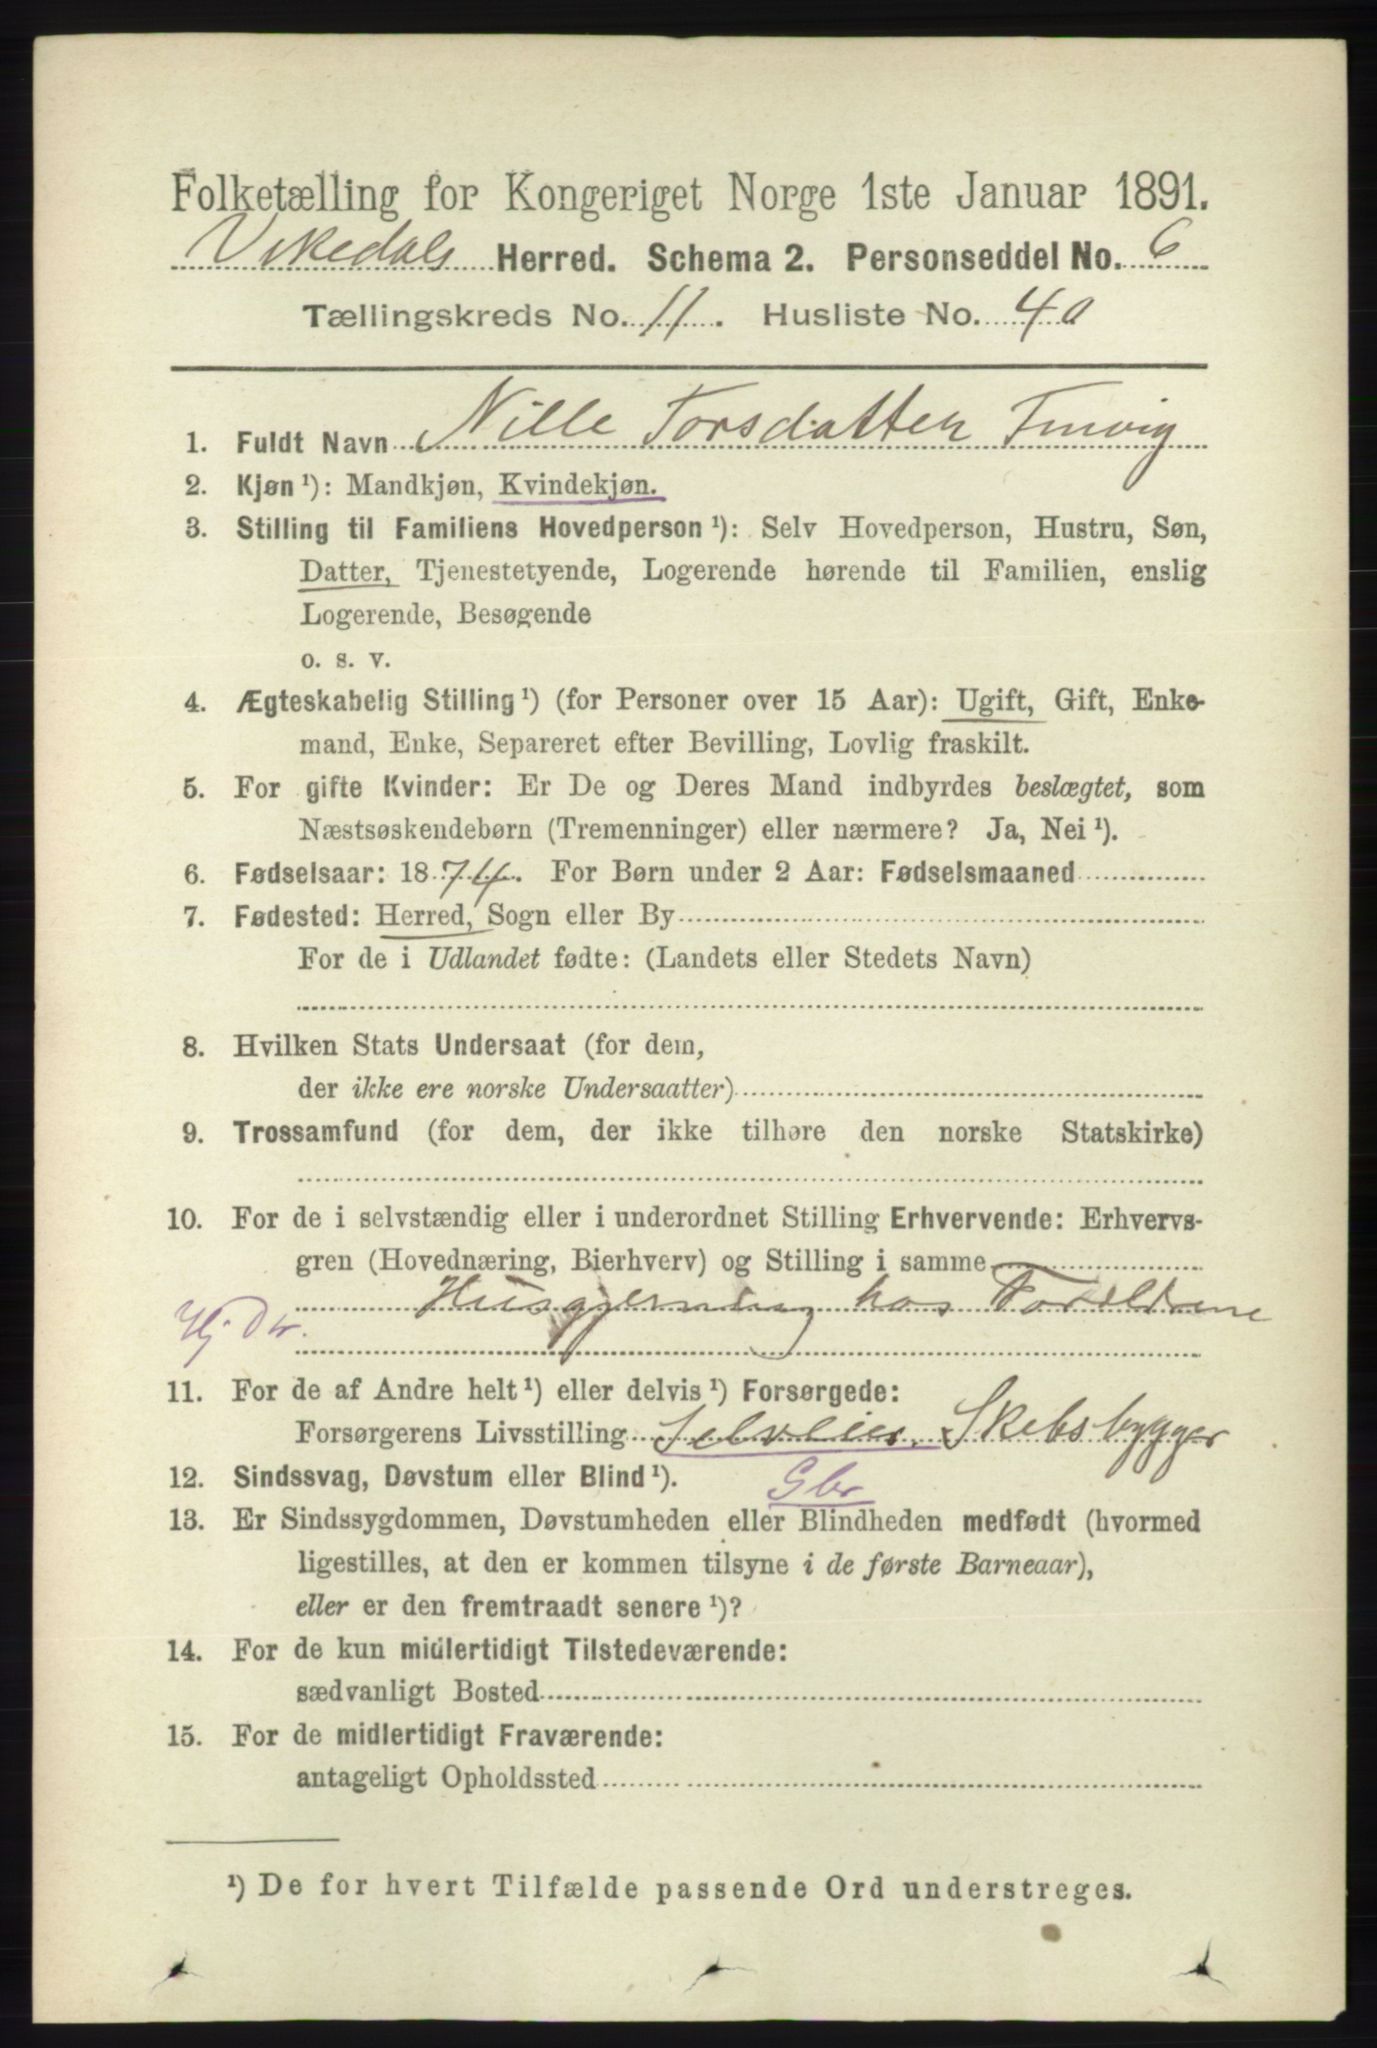 Folketælling for Kongeriget Norge 1ste Januar 1891.
Vikedals Herred. Schema 2. Personseddel No. 6
Tællingskreds No. 11. Husliste No. 40
1. Fuldt Navn Nille Torsdatter
2. Kjøn ¹): Mandkjøn, Kvindekjøn.
3. Stilling til Familiens Hovedperson ¹): Selv Hovedperson, Hustru, Søn,
Datter, Tjenestetyende, Logerende hørende til Familien, enslig
Logerende, Besøgende
o. s. v.
4. Ægteskabelig Stilling ¹) (for Personer over 15 Aar): Ugift, Gift, Enke-
mand, Enke, Separeret efter Bevilling, Lovlig fraskilt.
5. For gifte Kvinder: Er De og Deres Mand indbyrdes beslægtet, som
Næstsøskendebørn (Tremenninger) eller nærmere? Ja, Nei ¹).
6. Fødselsaar: 1874. For Børn under 2 Aar: Fødselsmaaned
7. Fødested: Herred, Sogn eller By
For de i Udlandet fødte: (Landets eller Stedets Navn)
8. Hvilken Stats Undersaat (for dem,
der ikke ere norske Undersaatter)
9. Trossamfund (for dem, der ikke tilhøre den norske Statskirke)
10. For de i selvstændig eller i underordnet Stilling Erhvervende: Erhvervs-
gren (Hovednæring, Bierhverv) og Stilling i samme
Husgjerning hos Forældrene
Hj. Dtr.
11. For de af Andre helt ¹) eller delvis ¹) Forsørgede:
Forsørgerens Livsstilling Selveier, Skibsbygger
12. Sindssvag, Døvstum eller Blind ¹). Gbr
13. Er Sindssygdommen, Døvstumheden eller Blindheden medfødt (hvormed
ligestilles, at den er kommen tilsyne i de første Barneaar),
eller er den fremtraadt senere ¹)?
14. For de kun midlertidigt Tilstedeværende:
sædvanligt Bosted
15. For de midlertidigt Fraværende:
antageligt Opholdssted
¹) De for hvert Tilfælde passende Ord understreges.